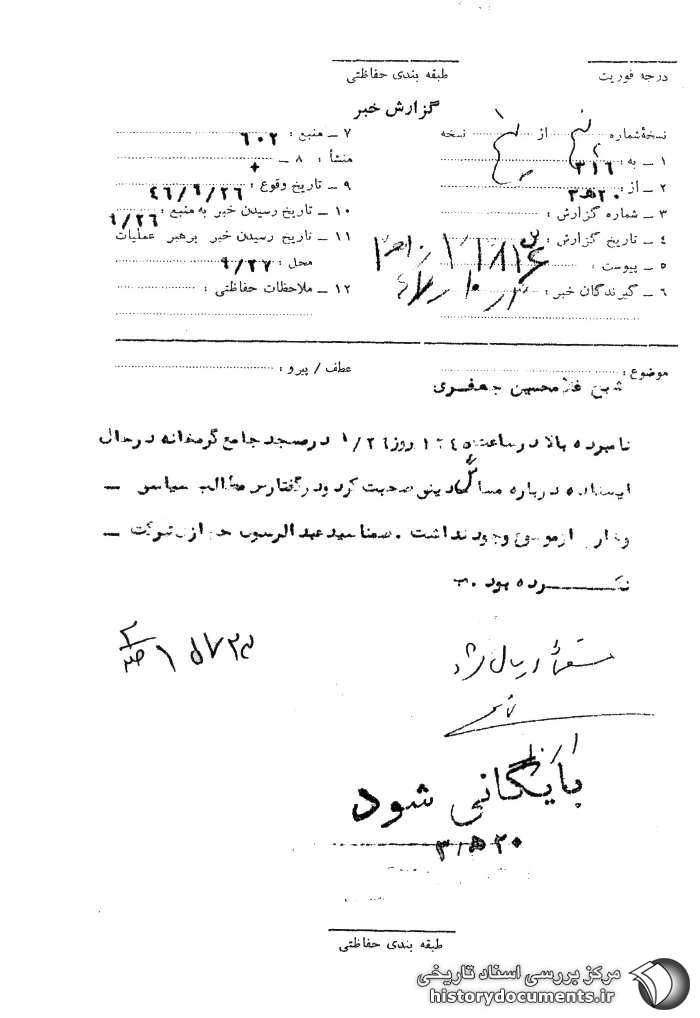 درجه فوریت
طبقه بندی حفاظتی
گزارش خبر
نسخهٔ شماره از نسخه
۱ ـ به : ۳۱۶
۲ ـ از : ۲۰هـ۳
۳ ـ شماره گزارش :
۴ ـ تاریخ گزارش :
۵ ـ پیوست :
۶ ـ گیرندگان خبر :
۷ ـ منبع : ۶۰۲
۸ ـ منشأ :
۹ ـ تاریخ وقوع : ۴۶/۹/۲۶
۱۰ ـ تاریخ رسیدن خبر به منبع : ۹/۲۶
۱۱ ـ تاریخ رسیدن خبر برهبر عملیات
محل : ۹/۲۷
۱۲ ـ ملاحظات حفاظتی :
موضوع : شیخ غلامحسین جعفری
عطف / پیرو :
نامبرده بالا در ساعت ۱۲۴۵ روز ۹/۲۶ در مسجد جامع گرمخانه در حال
ایستاده درباره مسائل دینی صحبت کرد و در گفتارش مطالب سیاسی ـ
وخارج از موضوع وجود نداشت . ضمنا سید عبدالرسول حجازی شرکت ـ
نکرده بود .
بایگانی شود
۲۰هـ۳
طبقه بندی حفاظتی
مرکز بررسی اسناد تاریخی
historydocuments.ir